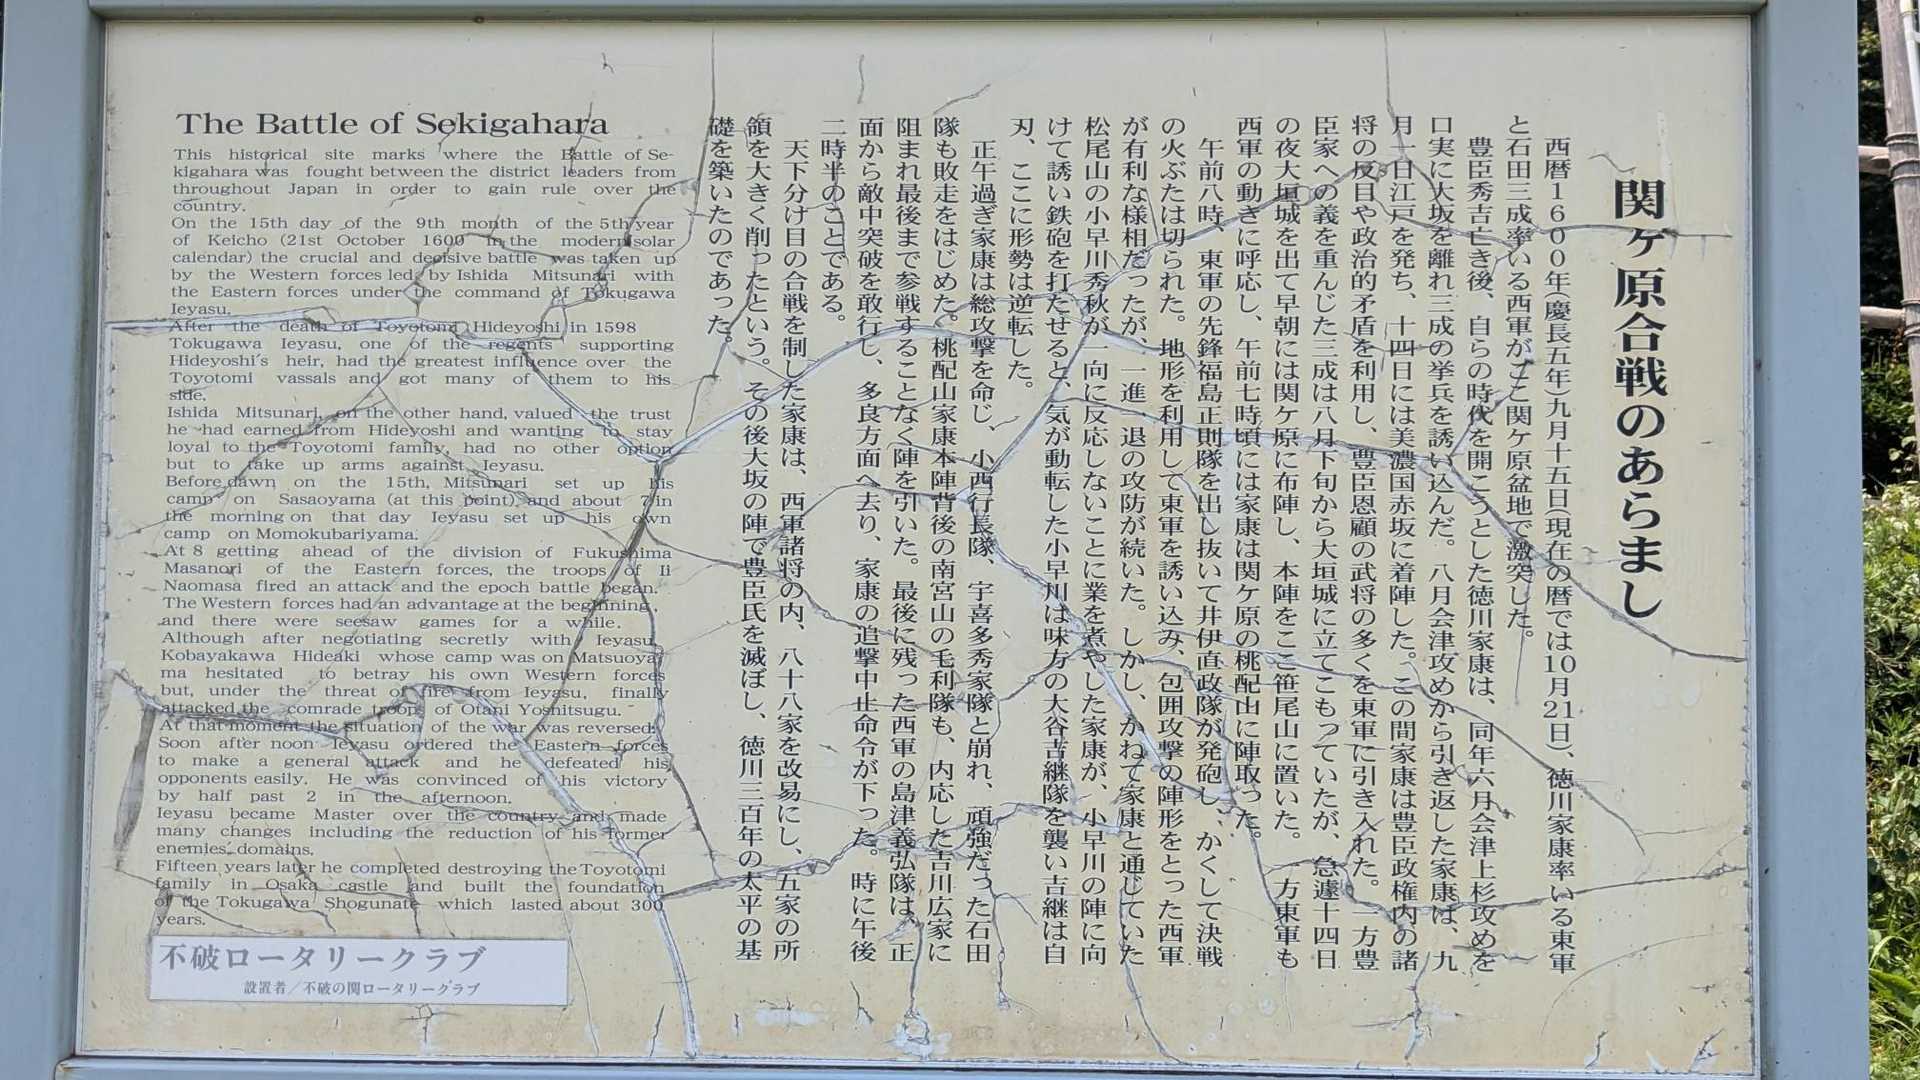 関ヶ原合戦のあらまし
西暦1600年(慶長五年)九月十五日(現在の暦では10月21日)、徳川家康率いる東軍
と石田三成率いる西軍がここ関ケ原盆地で激突した。
豊臣秀吉亡き後、自らの時代を開こうとした徳川家康は、同年六月会津上杉攻めを
口実に大坂を離れ三成の挙兵を誘い込んだ。八月会津攻めから引き返した家康は、九
月一日江戸を発ち、十四日には美濃国赤坂に着陣した。この間家康は豊臣政権内の諸
将の反目や政治的矛盾を利用し、豊臣恩顧の武将の多くを東軍に引き入れた。一方豊
臣家への義を重んじた三成は八月下旬から大垣城に立てこもっていたが、急遽十四日
の夜大垣城を出て早朝には関ケ原に布陣し、本陣をここ笹尾山に置いた。一方東軍も
西軍の動きに呼応し、午前七時頃には家康は関ケ原の桃配山に陣取った。
午前八時、東軍の先鋒福島正則隊を出し抜いて井伊直政隊が発砲し、かくして決戦
の火ぶたは切られた。地形を利用して東軍を誘い込み、包囲攻撃の陣形をとった西軍
が有利な様相だったが、一進一退の攻防が続いた。しかし、かねて家康と通じていた
松尾山の小早川秀秋が一向に反応しないことに業を煮やした家康が、小早川の陣に向
けて誘い鉄砲を打たせると、気が動転した小早川は味方の大谷吉継隊を襲い吉継は自
刃、ここに形勢は逆転した。
正午過ぎ家康は総攻撃を命じ、小西行長隊、宇喜多秀家隊と崩れ、頑強だった石田
隊も敗走をはじめた。桃配山家康本陣背後の南宮山の毛利隊も、内応した吉川広家に
阻まれ最後まで参戦することなく陣を引いた。最後に残った西軍の島津義弘隊は、正
面から敵中突破を敢行し、多良方面へ去り、家康の追撃中止命令が下った。時に午後
二時半のことである。
天下分け目の合戦を制した家康は、西軍諸将の内、八十八家を改易にし、五家の所
領を大きく削ったという。その後大坂の陣で豊臣氏を滅ぼし、徳川三百年の太平の基
礎を築いたのであった。
The Battle of Sekigahara
This historical site marks where the Battle of Se-
kigahara was fought between the district leaders from
throughout Japan in order to gain rule over the
country.
On the 15th day of the 9th month of the 5th year
of Keicho (21st October 1600 in the modern solar
calendar) the crucial and decisive battle was taken up
by the Western forces led by Ishida Mitsunari with
the Eastern forces under the command of Tokugawa
Ieyasu.
After the death of Toyotomi Hideyoshi in 1598
Tokugawa Ieyasu, one of the regents supporting
Hideyoshi's heir, had the greatest influence over the
Toyotomi vassals and got many of them to his
side.
Ishida Mitsunari, on the other hand, valued the trust
he had earned from Hideyoshi and wanting to stay
loyal to the Toyotomi family, had no other option
but to take up arms against Ieyasu.
Before dawn on the 15th, Mitsunari set up his
camp on Sasaoyama (at this point) and about 7 in
the morning on that day Ieyasu set up his own
camp on Momokubariyama.
At 8 getting ahead of the division of Fukushima
Masanori of the Eastern forces, the troops of Ii
Naomasa fired an attack and the epoch battle began.
The Western forces had an advantage at the beginning,
and there were seesaw games for a while.
Although after negotiating secretly with Ieyasu,
Kobayakawa Hideaki whose camp was on Matsuoya-
ma hesitated to betray his own Western forces
but, under the threat of fire from Ieyasu, finally
attacked the comrade troops of Otani Yoshitsugu.
At that moment the situation of the war was reversed.
Soon after noon Ieyasu ordered the Eastern forces
to make a general attack and he defeated his
opponents easily. He was convinced of his victory
by half past 2 in the afternoon.
Ieyasu became Master over the country and made
many changes including the reduction of his former
enemies domains.
Fifteen years later he completed destroying the Toyotomi
family in Osaka castle and built the foundation
of the Tokugawa Shogunate which lasted about 300
years.
不破ロータリークラブ
設置者／不破の関ロータリークラブ